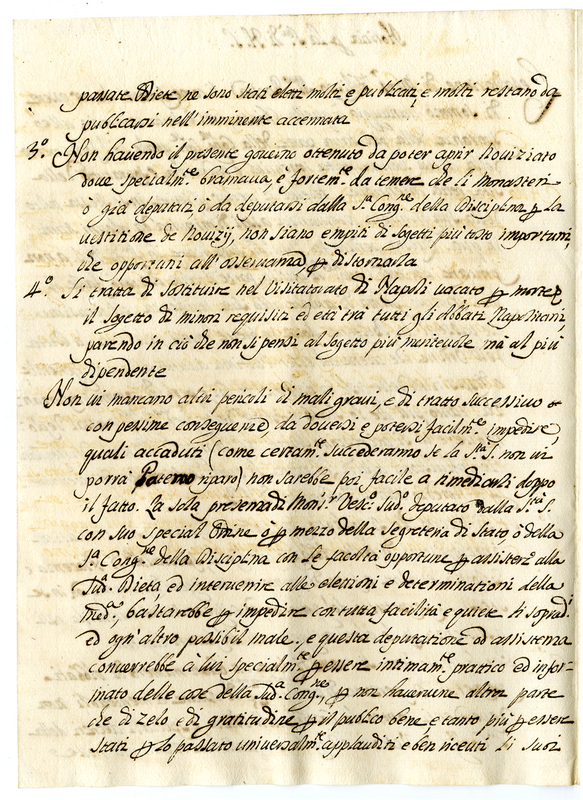 passate Diete ne sono stati eletti molti e publicati, e molti restano da
publicarsi nell'imminente accennata
3.º Non havendo il presente governo ottenuto da poter aprir Noviziato
dove specialm.te bramava, è fortem.te da temere che li Monasteri
ò già deputati, ò da deputarsi dalla S.ª Cong.ne della Disciplina p la
vestitione de Novizij, non siano empiti di sogetti più tosto importuni,
che opportuni all'osservanza, p distornarla
4.º Si tratta di sostituire nel Visitatorato di Napoli vacato p morte
il sogetto di minori requisiti ed età trà tutti gli Abbati Napolitani,
parendo in ciò che non si pensi al sogetto più meritevole mà al più
dipendente
Non vi mancano altri pericoli di mali gravi, e di tratto successivo
con pessime conseguenze, da doversi e potersi facilm.te impedire,
quali accaduti (come certam.te succederanno se la S.tà S. non vi
porrà Paterno riparo) non sarebbe poi facile a rimediarli doppo
il fatto. La sola presenza di Mons.r Vesc.º Sud.º deputato dalla S.tà S.
con suo special Ordine ò p mezzo della Segreteria di Stato, ò della
S.ª Cong.ne della Disciplina con le facoltà opportune p assistere alla
Sud.ª Dieta, ed intervenire alle elettioni e determinationi della
med.ª, bastarebbe p impedire con tutta facilità e quiete li soprad.i
ed ogn'altro possibil male, e questa deputatione ed assistenza
converrebbe à lui specialm.te p essere intimam.te prattico ed infor-
mato delle cose della Sud.ª Cong.ne, p non havervene altra parte
che di zelo e di gratitudine p il publico bene e tanto più p essere
stati p lo passato universalm.te applauditi e ben ricevuti li suoi